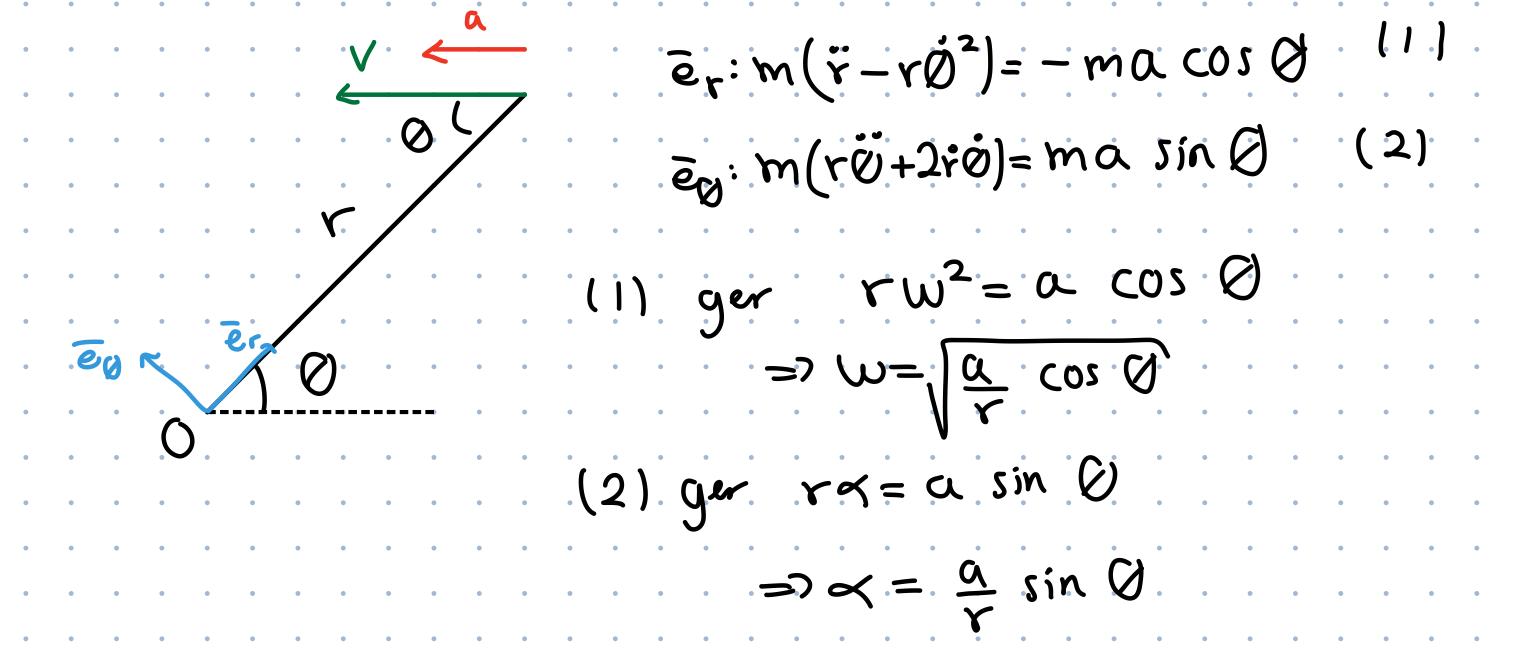 a
V
θ
r
ē_θ
ē_r
θ
O
ē_r: m(r̈ − rθ̇²) = − ma cos θ (1)
ē_θ: m(rθ̈ + 2ṙθ̇) = ma sin θ (2)
(1) ger rw² = a cos θ
⇒ w = √(a/r cos θ)
(2) ger rα = a sin θ
⇒ α = a/r sin θ